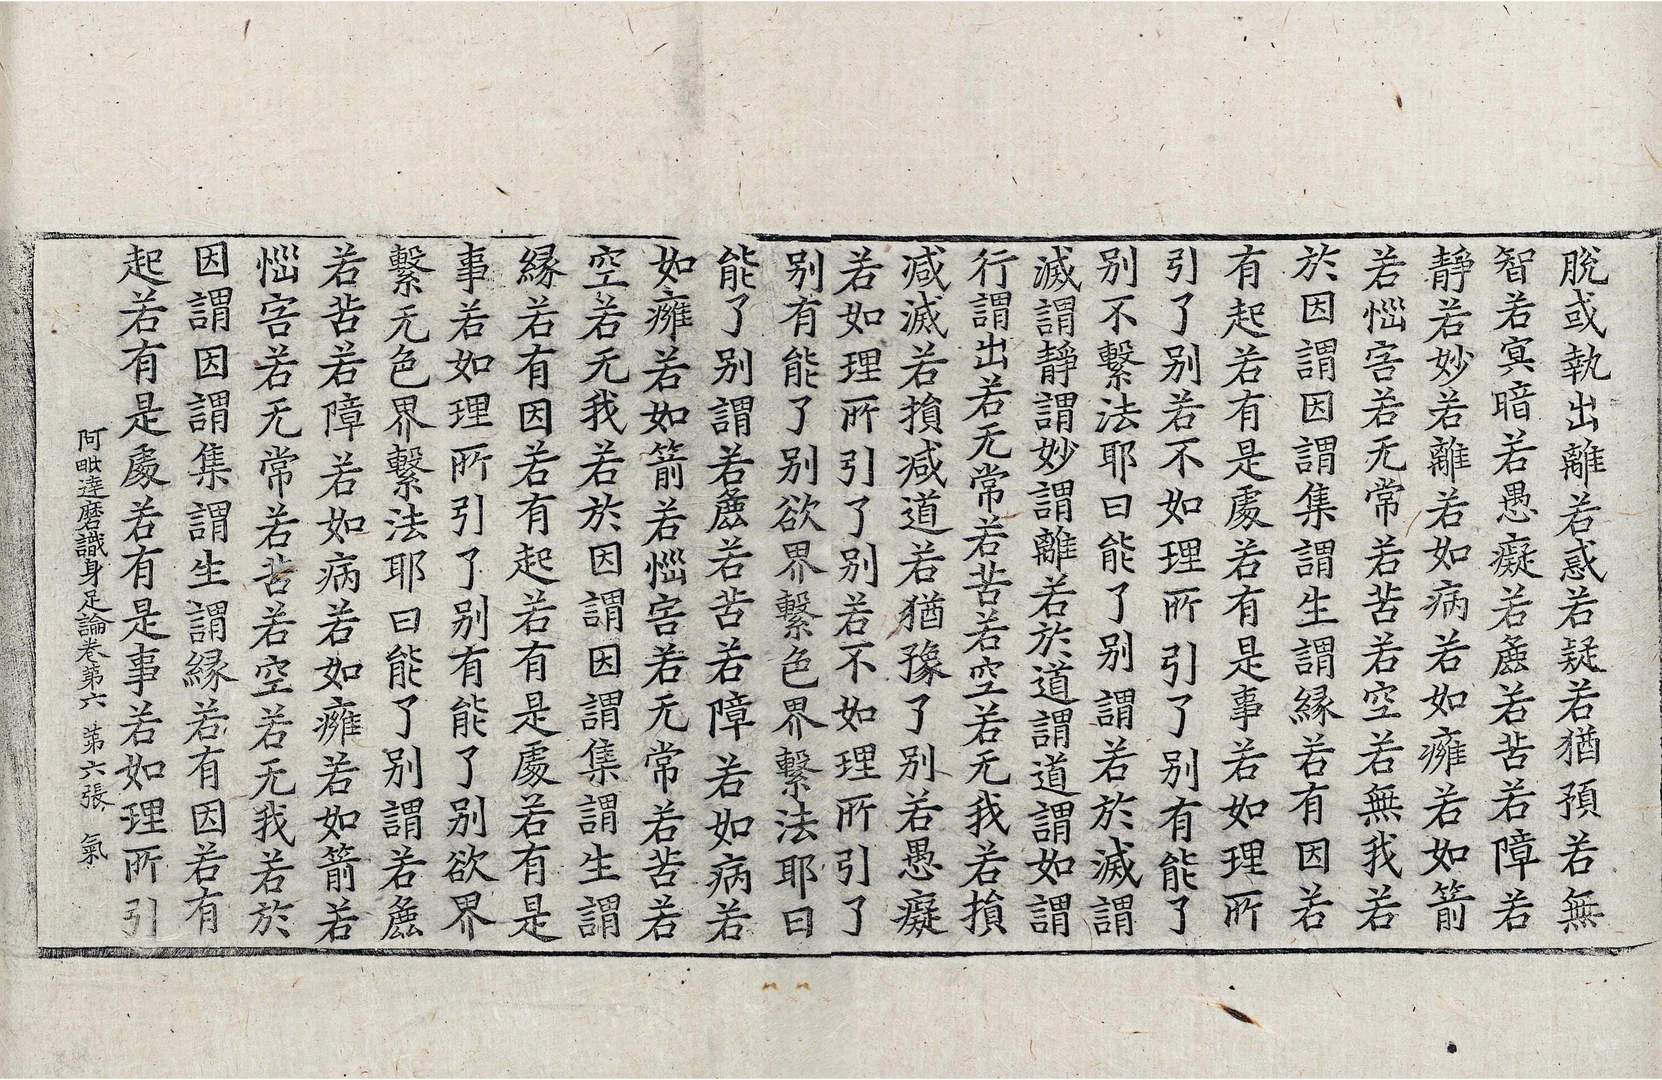 脫或執出離若惑若疑若猶預若無
智若冥暗若愚癡若麁若苦若障若
靜若妙若離若如病若如癰若如箭
若惱害若无常若苦若空若無我若
於因謂因謂集謂生謂緣若有因若
有起若有是處若有是事若如理所
引了別若不如理所引了別有能了
別不繫法耶曰能了別謂若於滅謂
滅謂靜謂妙謂離若於道謂道謂如謂
行謂出若无常若苦若空若无我若損
減滅若損減道若猶豫了別若愚癡
若如理所引了別若不如理所引了
別有能了別欲界繫色界繫法耶曰
能了別謂若麁若苦若障若如病若
如癰若如箭若惱害若无常若苦若
空若无我若於因謂因謂集謂生謂
緣若有因若有起若有是處若有是
事若如理所引了別有能了別欲界
繫无色界繫法耶曰能了別謂若麁
若苦若障若如病若如癰若如箭若
惱害若无常若苦若空若无我若於
因謂因謂集謂生謂緣若有因若有
起若有是處若有是事若如理所引
阿毗達磨識身足論卷第六 第六張 氣